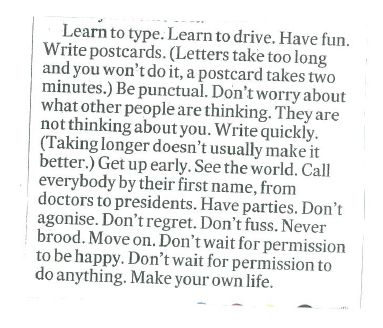 Learn to type. Learn to drive. Have fun.
Write postcards. (Letters take too long
and you won't do it, a postcard takes two
minutes.) Be punctual. Don't worry about
what other people are thinking. They are
not thinking about you. Write quickly.
(Taking longer doesn't usually make it
better.) Get up early. See the world. Call
everybody by their first name, from
doctors to presidents. Have parties. Don't
agonise. Don't regret. Don't fuss. Never
brood. Move on. Don't wait for permission
to be happy. Don't wait for permission to
do anything. Make your own life.